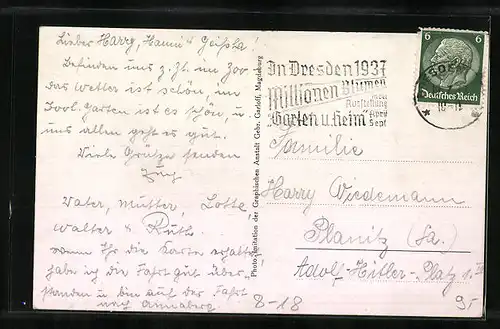 Lieber Harry, Hanni & Geissha!
Befinden uns z. Zt. im Zoo
das Wetter ist schön, im
Zool. Garten ist es schön, u.
uns allen geht es gut.
Viele Grüße senden
Vater, Mutter, Lotte,
Walter & Ruth.
wenn Ihr die Karte erhaltet
habe ich die Fahrt gut über=
standen u. bin auf der Fahrt
nach Annaberg
Photo-Imitation der Graphischen Anstalt Gebr. Garloff, Magdeburg
In Dresden 1937
Millionen Blumen
Ausstellung
"Garten u. Heim" April
Sept
6 6
Deutsches Reich
Familie
Harry Wiedemann
Planitz (Sa.)
Adolf-Hitler-Platz
8-18
9,-